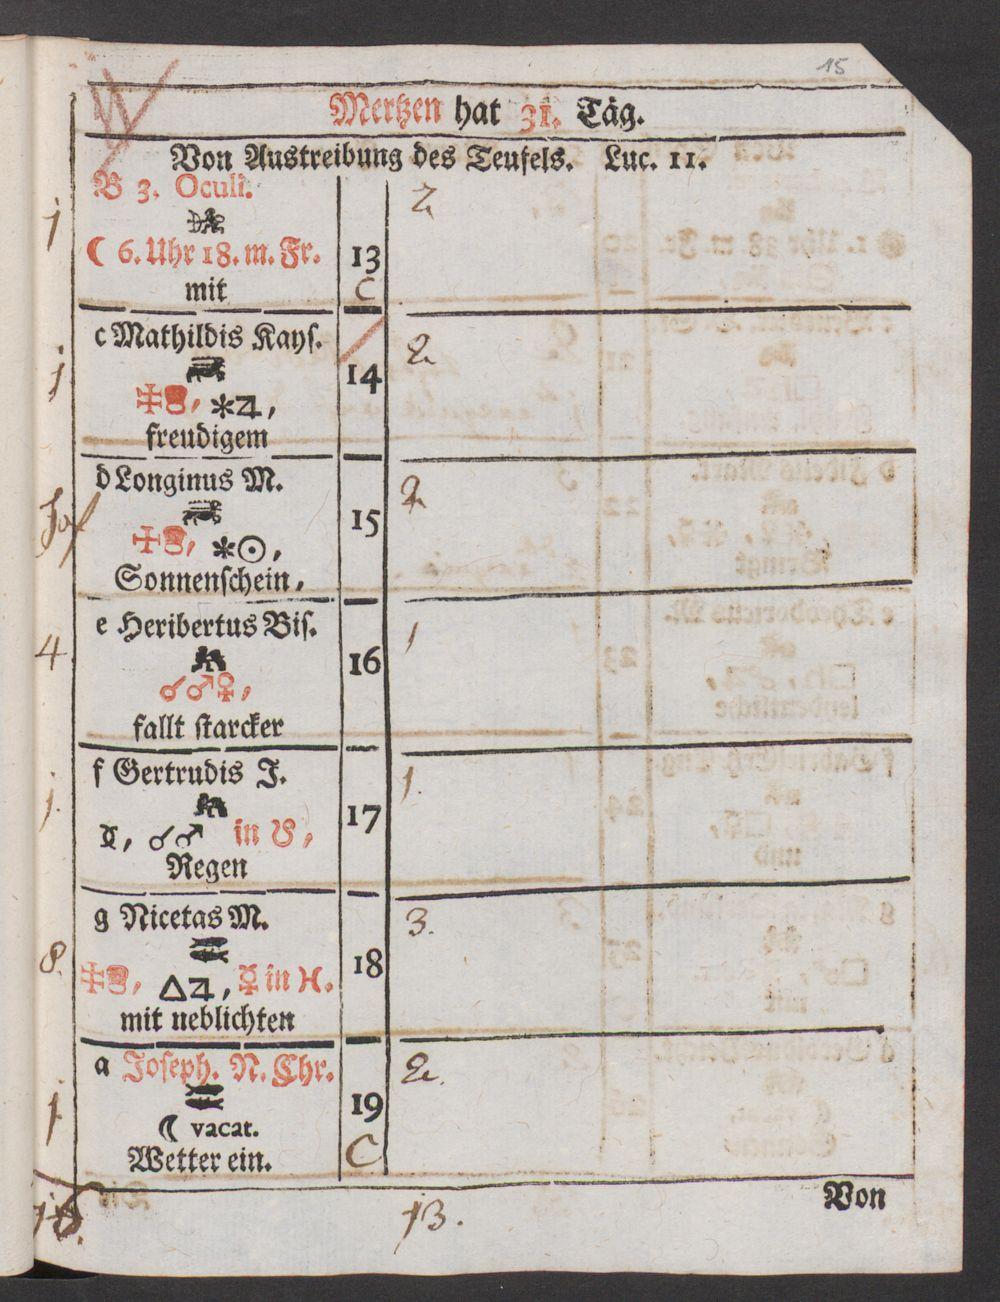 15
Mertzen hat 31. Täg.
Von Austreibung des Teufels. Luc. 11.
B 3. Oculi.
☾ 6. Uhr 18. m. Fr.
mit
13
C
2
1
c Mathildis Kayſ.
✠, ⚹♃,
freudigem
14
2.
1
d Longinus M.
✠, ⚹☉,
Sonnenſchein,
15
2
e Heribertus Biſ.
☌♂♀,
fallt ſtarcker
16
1
4
f Gertrudis J.
☿, ☌♂ in ♉,
Regen
17
1.
1.
g Nicetas M.
✠, △♃, ☿ in ♓.
mit neblichten
18
3.
8.
a Joſeph. N. Chr.
☾ vacat.
Wetter ein.
19
C
2.
1
13.
Von